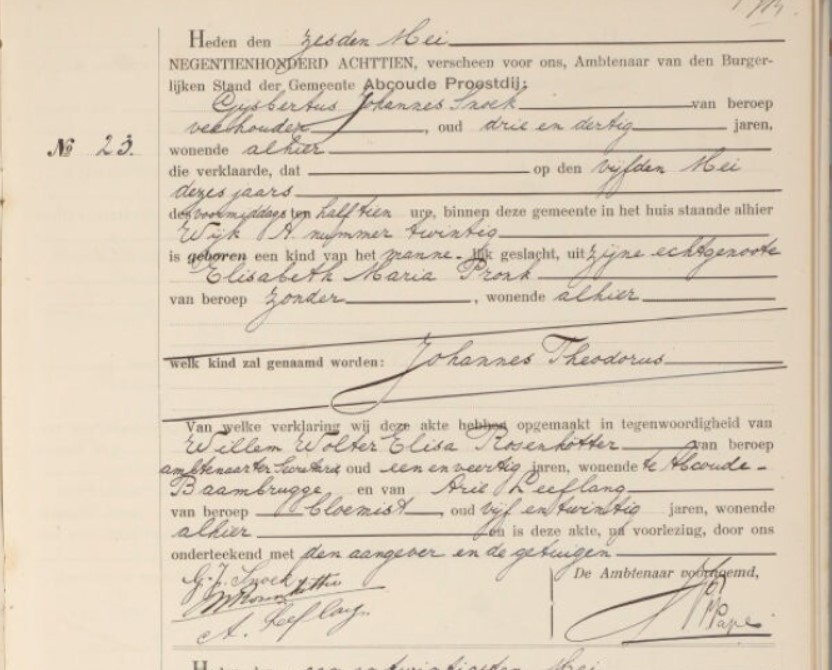 Heden den zesden Mei
NEGENTIENHONDERD ACHTTIEN, verscheen voor ons, Ambtenaar van den Burger-
lijken Stand der Gemeente Abcoude Proostdij:
Gijsbertus Johannes Snoek van beroep
veehouder, oud drie en dertig jaren,
No 23. wonende alhier
die verklaarde, dat op den vijfden Mei
dezes jaars
des voormiddags ten half tien ure, binnen deze gemeente in het huis staande alhier
Wijk A. nummer twintig
is geboren een kind van het manne-lijk geslacht, uit zijne echtgenoote
Elisabeth Maria Pronk
van beroep zonder, wonende alhier
welk kind zal genaamd worden: Johannes Theodorus
Van welke verklaring wij deze akte hebben opgemaakt in tegenwoordigheid van
Willem Wolter Elisa Rosenkötter van beroep
ambtenaar ter Secretarie oud een en veertig jaren, wonende te Abcoude-
Baambrugge en van Arie Leeflang
van beroep bloemist, oud vijf en twintig jaren, wonende
alhier en is deze akte, na voorlezing, door ons
onderteekend met den aangever en de getuigen
De Ambtenaar voornoemd,
G. J. Snoek
A. Leeflang
Pape
Heden den een en twintigsten Mei